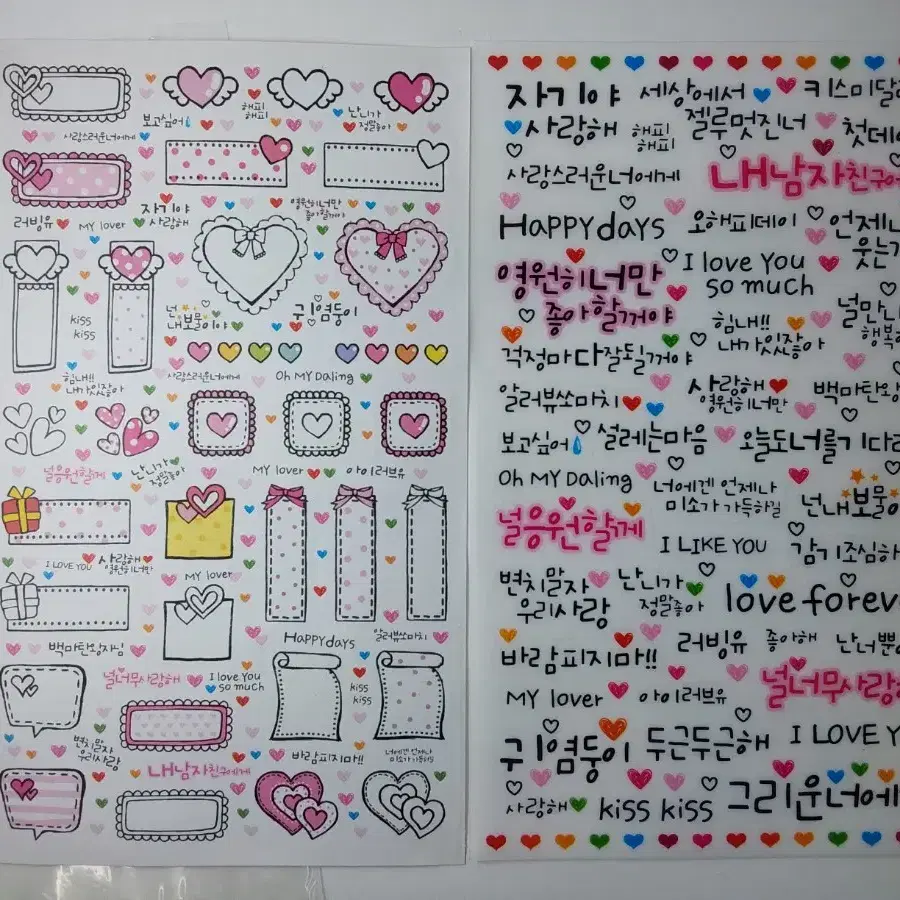 보고싶어
해피
해피
난 니가
정말좋아
사랑스러운너에게
러빙유
MY lover
자기야
사랑해
영원히너만
좋아할거야
kiss
kiss
넌
내보물이야
귀염둥이
힘내!!
내가있잖아
사랑스러운너에게
Oh MY Daling
널응원할게
난 니가
정말좋아
MY lover
아이러브유
I LOVE YOU
사랑해
영원히너만
MY lover
백마탄왕자님
HAPPYdays
알러뷰쏘마치
널너무사랑해
I love You
so much
kiss
kiss
변치말자
우리사랑
내남자친구에게
바람피지마!!
너에겐 언제나
미소가 가득하길
자기야
세상에서
키스미달
사랑해
해피
해피
젤루멋진너
첫데
사랑스러운너에게
내남자친구에
HAPPYdays
오해피데이
언제나
웃는
영원히너만
좋아할꺼야
I love You
so much
힘내!!
내가있잖아
널만나
행복
걱정마다잘될거야
알러뷰쏘마치
사랑해
영원히너만
백마탄왕
보고싶어
설레는마음
오늘도너를기다
Oh MY Daling
너에겐 언제나
미소가 가득하길
넌내보물이
널응원할게
I LIKE YOU
감기조심하
변치말자
우리사랑
난 니가
정말좋아
love foreve
바람피지마!!
러빙유
좋아해
난너뿐
MY lover
아이러브유
널너무사랑
귀염둥이
두근두근해
I LOVE Y
사랑해
kiss kiss
그리운너에